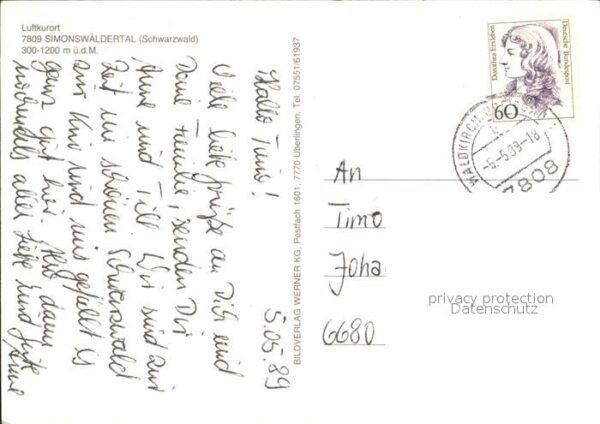 Luftkurort
7809 SIMONSWÄLDERTAL (Schwarzwald)
300-1200 m ü.d.M.
Hallo Timo!
5.05.89
Viele liebe Grüße an Dich und
Deine Familie, senden Dir
Anne und Till. Wir sind zur
Zeit im schönen Schwarzwald
zur Kur und uns gefällt es
ganz gut hier. Also dann
nochmals alles Liebe und Gute
Anne
BILDVERLAG WERNER KG. Postfach 1601, 7770 Überlingen, Tel. 07551/61937
Dorothea Erxleben
Deutsche Bundespost
60
WALDKIRCH
-5.-5.89-18
7808
An
Timo
Joha
6680
privacy protection
Datenschutz